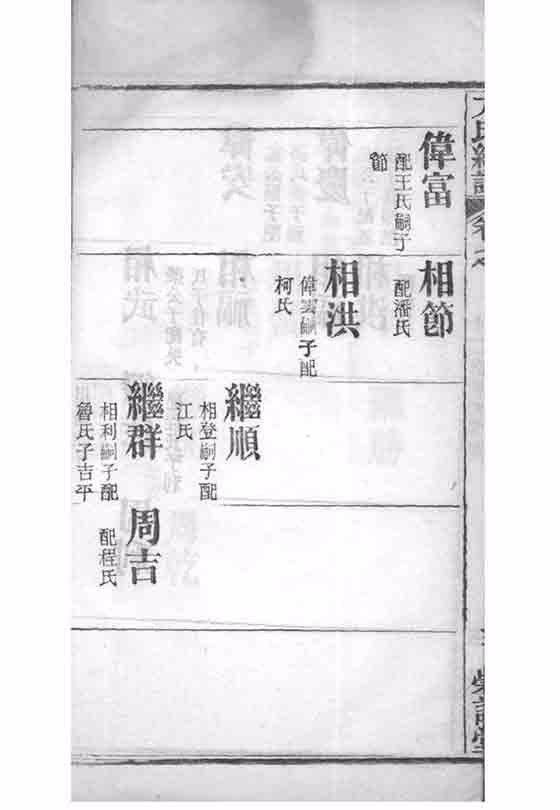 偉富
配王氏嗣子
節
相節
配潘氏
相洪
偉雲嗣子配
柯氏
繼順
相登嗣子配
江氏
繼群
相利嗣子配
魯氏子吉平
周吉
配程氏